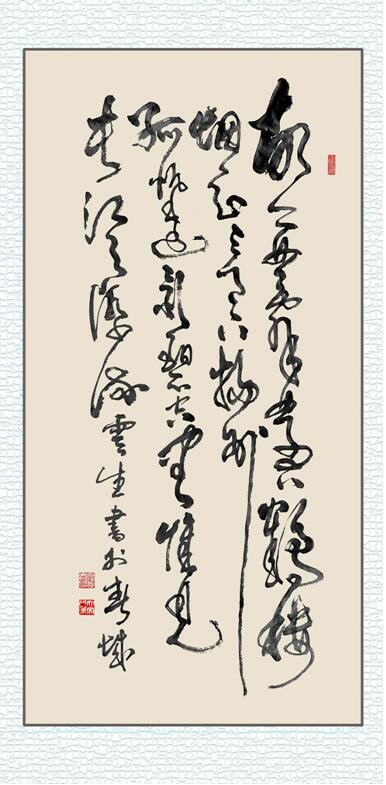 故人西辭黃鶴樓
烟花三月下揚州
孤帆遠影碧空盡惟見
長江天際流雲生書於春城